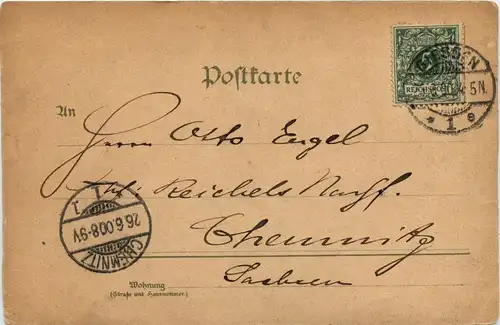 Postkarte
REICHSPOST
DRESDEN
5N.
* 1 e
An
Herrn Otto Engel
Reichels Nachf.
Chemnitz
Sachsen
1
26.6.00.8-9V
CHEMNITZ
Wohnung
(Straße und Hausnummer.)